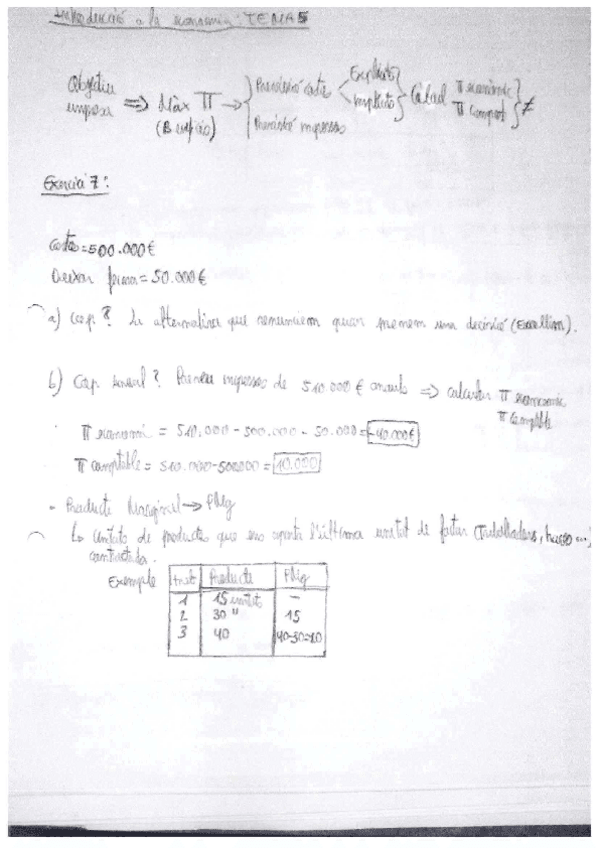 Introducció a la economia: TEMA 5
Objectiu empresa => Màx π (Benefici) → Previsió costos Explícits Implícits Càlcul π econòmic π comptable ≠
Previsió ingressos
Exercici 7:
Costos = 500.000€
Deixar feina = 50.000€
a) Cop.? La alternativa que renunciem quan prenem una decisió (Excellim).
b) Cop anual? Preveu ingressos de 510.000 € anuals => calcular π econòmic
π Comptable
π econòmic = 510.000 - 500.000 - 50.000 = -40.000€
π comptable = 510.000 - 500.000 = 10.000
• Producte Marginal → PMg
↳ Unitats de producte que ens aporta l'última unitat de factor (treballadors, hores ...)
contractada.
Exemple Treb Producte PMg
1 15 unitats -
2 30 " 15
3 40 40-30=10